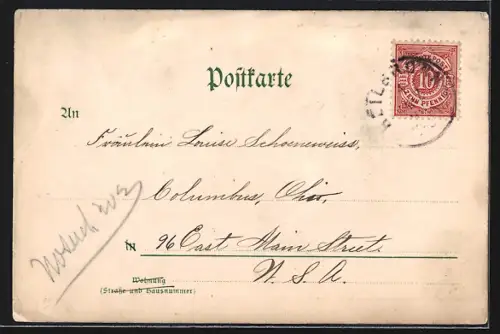 Postkarte
An
Fräulein Louise Schoeneweiss,
Columbus, Ohio,
in 96 East Main Street.
U. S. A.
Wohnung
(Straße und Hausnummer)
10